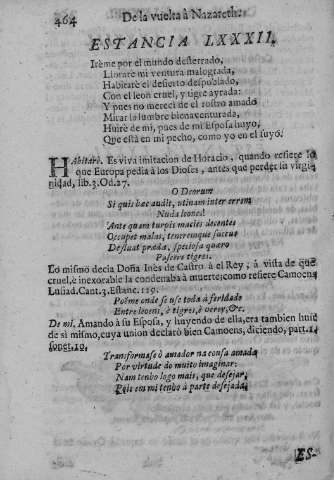 464 De la vuelta à Nazareth.
ESTANCIA LXXXII.
Irème por el mundo desterrado,
Llorarè mi ventura malograda,
Habitarè el desierto despoblado,
Con el leon cruel, y tigre ayrada:
Y pues no mereci de el rostro amado
Mirar la lumbre bienaventurada,
Huirè de mi, pues de mi Esposa huyo,
Que està en mi pecho, como yo en el suyo.
Habitarè. Es viva imitacion de Horacio, quando refiere lo
que Europa pedia à los Dioses, antes que perder la virgi-
nidad, lib. 3. Od. 27.
O Deorum
Si quis hæc audit, utinam inter errem
Nuda leones!
Ante quam turpis macies decentes
Occupet malas, teneræque succus
Defluat prædæ, speciosa quæro
Pascere tigres.
Lo mismo decia Doña Inès de Castro à el Rey, à vista de que
cruel, è inexorable la condenaba à muerte; como refiere Camoens
Lusiad. Cant. 3. Estanc. 129.
Poème onde se use toda à feridade
Entre leoens, è tigres, è verey, &c.
De mi. Amando à su Esposa, y huyendo de ella, era tambien huir
de si mismo, cuya union declarò bien Camoens, diciendo, part. 1.
sonet. 10.
Transformase ò amador na cousa amada
Por virtude do muito imaginar:
Nam tenho logo mais, que desejar,
Pois em mi tenho à parte desejada.
ES-